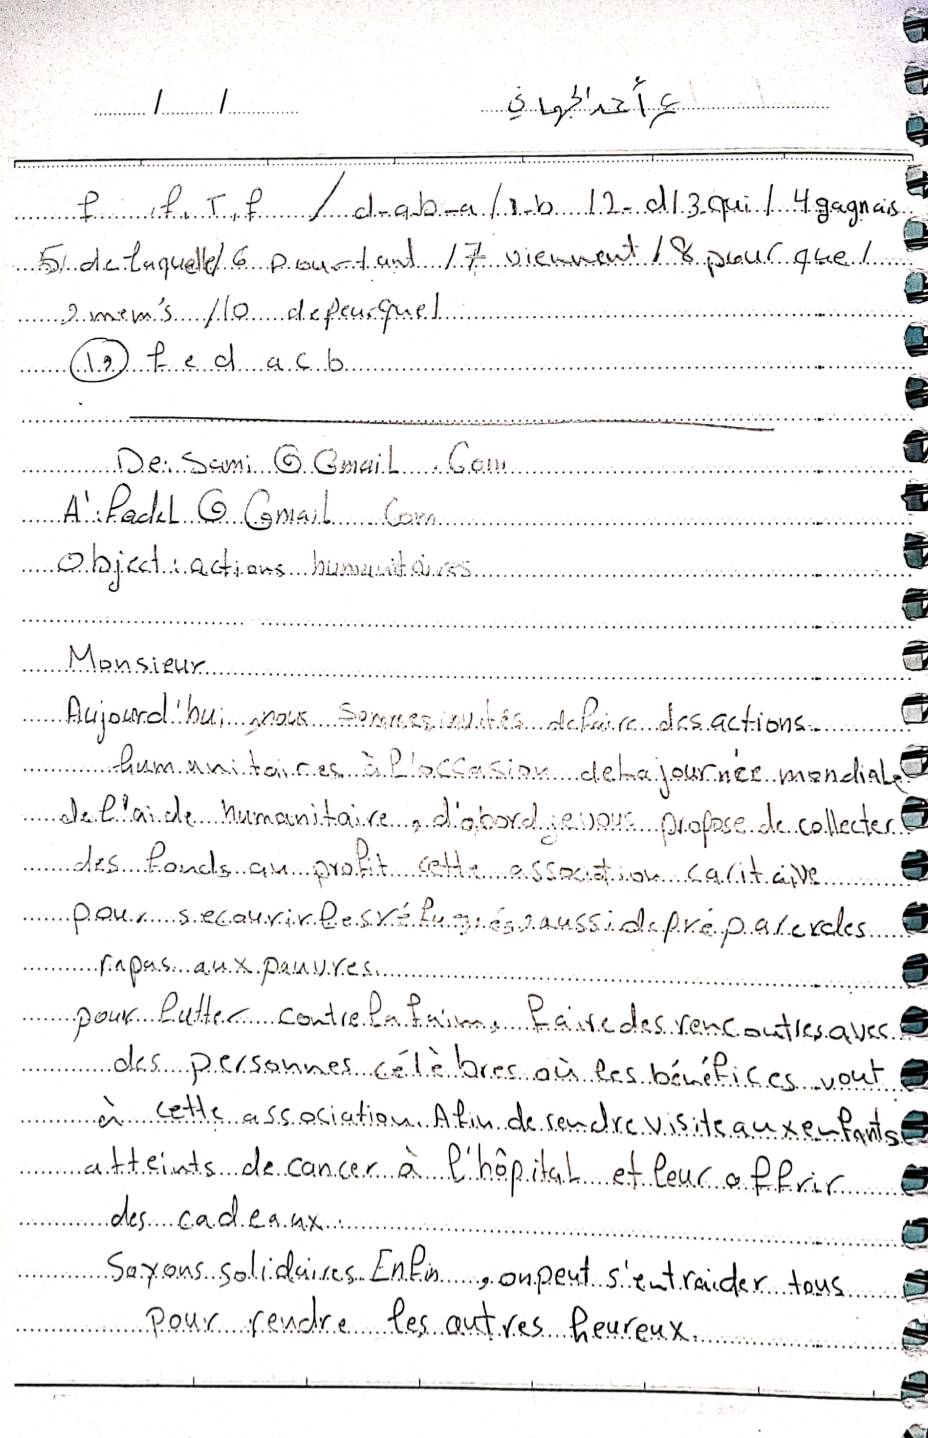 / /
ع أحمد الجهادي
f. f. T. f / d-a-b-a / 1-b / 2-d / 3 qui / 4 gagnais
5/ de laquelle / 6 pourtant / 7 viennent / 8 pour que /
9 mem's / 10 depeurque /
(12) f e d a c b
De: Sami @ Gmail . Com
A': Padel @ Gmail Com
Object : actions humanitaires
Monsieur
Aujourd'hui nous sommes invités de faire des actions
humanitaires à l'occasion de la journée mondiale
de l'aide humanitaire, d'abord je vous propose de collecter
des fonds au profit cette association caritaive
pour secourir les réfugiés, aussi de préparer des
rapas aux pauvres.
pour lutter contre la faim, faire des rencoutres avec
des personnes célèbres où les bénéfices vont
à cette association. Afin de rendre visite aux enfants
atteints de cancer à l'hôpital et leur offrir
des cadeaux.
Soyons solidaires. Enfin, on peut s'entraider tous
pour rendre les autres heureux.